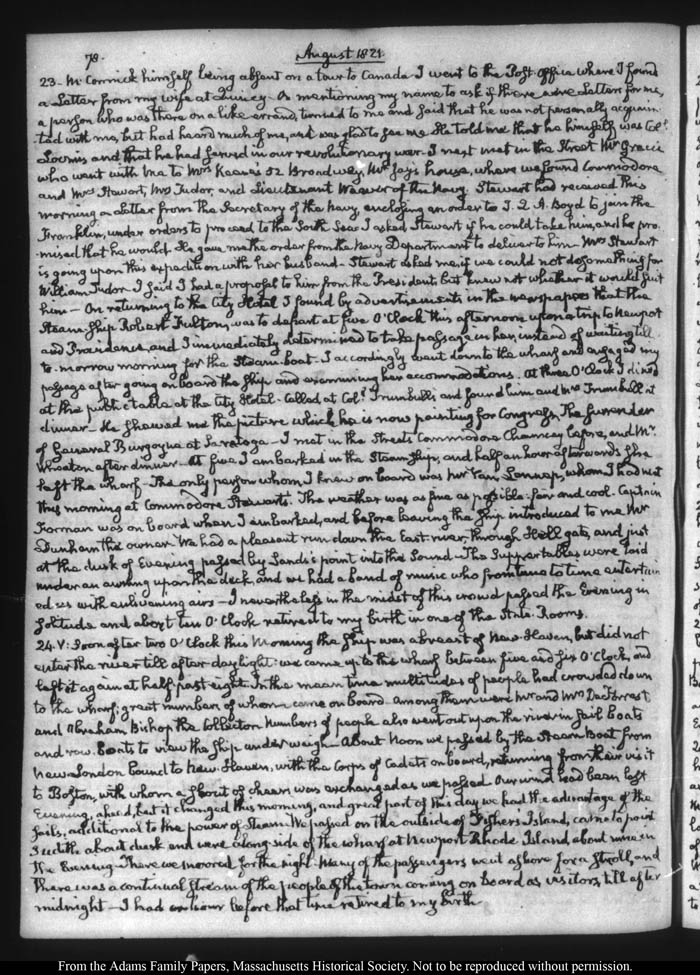 78.
August 1821.
23- McCormick himself being absent on a tour to Canada I went to the Post-office where I found
a Letter from my wife at Quincy. On mentioning my name to ask if there were Letters for me,
a person who was there on a like errand, turned to me and said that he was not personally acquain-
ted with me, but had heard much of me, and was glad to see me. He told me that he himself was Coll.
Loomis and that he had served in our revolutionary war. I next met in the Street Mr Gracie
who went with me to Mrs Keane's 52 Broadway, Mr Jay's house, where we found Commodore
and Mrs Stewart, Mrs Tudor, and Lieutenant Weaver of the Navy. Stewart had received this
morning a Letter from the Secretary of the Navy, enclosing an order to J. Q. A. Boyd to join the
Franklin, under orders to proceed to the South Sea. I asked Stewart if he could take him, and he pro-
mised that he would. He gave me the order from the Navy Department to deliver to him- Mrs Stewart
is going upon this expedition with her husband- Stewart asked me if we could not do something for
William Tudor- I said I had a proposal to him from the President but knew not whether it would suit
him- On returning to the City Hotel I found by advertisements in the newspapers that the
Steam-Ship Robert Fulton, was to depart at five O'Clock this afternoon upon a trip to Newport
and Providence, and I immediately determined to take passage in her, instead of waiting till
to-morrow morning for the Steam-boat. I accordingly went down to the wharf and engaged my
passage after going on board the Ship and examining her accommodations. At three O'Clock I dined
at the public table at the City Hotel- Called at Coll. Trumbull's and found him and Mrs Trumbull at
dinner- He shewed me the picture which he is now painting for Congress, The Surrender
of General Burgoyne at Saratoga- I met in the Streets Commodore Chauncey before, and Mr
Wheaton after dinner- At five I embarked in the Steam Ship, and half an hour afterwards she
left the wharf- The only person whom I knew on board was Mr Van Lennep, whom I had met
this morning at Commodore Stewart's. The weather was as fine as possible: fair and cool. Captain
was on board when I embarked, and before leaving the Ship introduced to me Mr
Dunham the owner- We had a pleasant run down the East-river, through Hell gate, and just
at the dusk of Evening passed by Sands's point into the Sound- The Supper tables were laid
under an awning upon the deck, and we had a band of music who from time to time entertain-
ed us with enlivening airs- I nevertheless in the midst of this crowd passed the Evening in
Solitude and about ten O'Clock retired to my birth in one of the State-Rooms.
24. V: Soon after two O'Clock this Morning the Ship was abreast of New-Haven, but did not
enter the river till after daylight: we came up to the wharf between five and six O'Clock, and
left it again at half past eight. In the mean time multitudes of people had crowded down
to the wharf; great numbers of whom came on board- among them were Mr and Mrs DeForest,
and Abraham Bishop the Collector. Numbers of people also went out upon the river in sail boats
and row-boats to view the Ship under weigh- About Noon we passed by the Steam Boat from
New-London bound to New-Haven, with the Corps of Cadets on board, returning from their visit
to Boston, with whom a shout of cheers was exchanged as we passed. Our wind had been last
Evening, ahead, but it changed this morning, and great part of this day we had the advantage of the
sails, additional to the power of Steam. We passed on the outside of Fishers Island, came to point
Judith about dusk and were along-side of the wharf at Newport Rhode Island, about nine in
the Evening- There we moored for the night- Many of the passengers went ashore for a stroll, and
there was a continual stream of the people of the town coming on board as visitors, till after
midnight- I had an hour before that time retired to my birth-
From the Adams Family Papers, Massachusetts Historical Society. Not to be reproduced without permission.